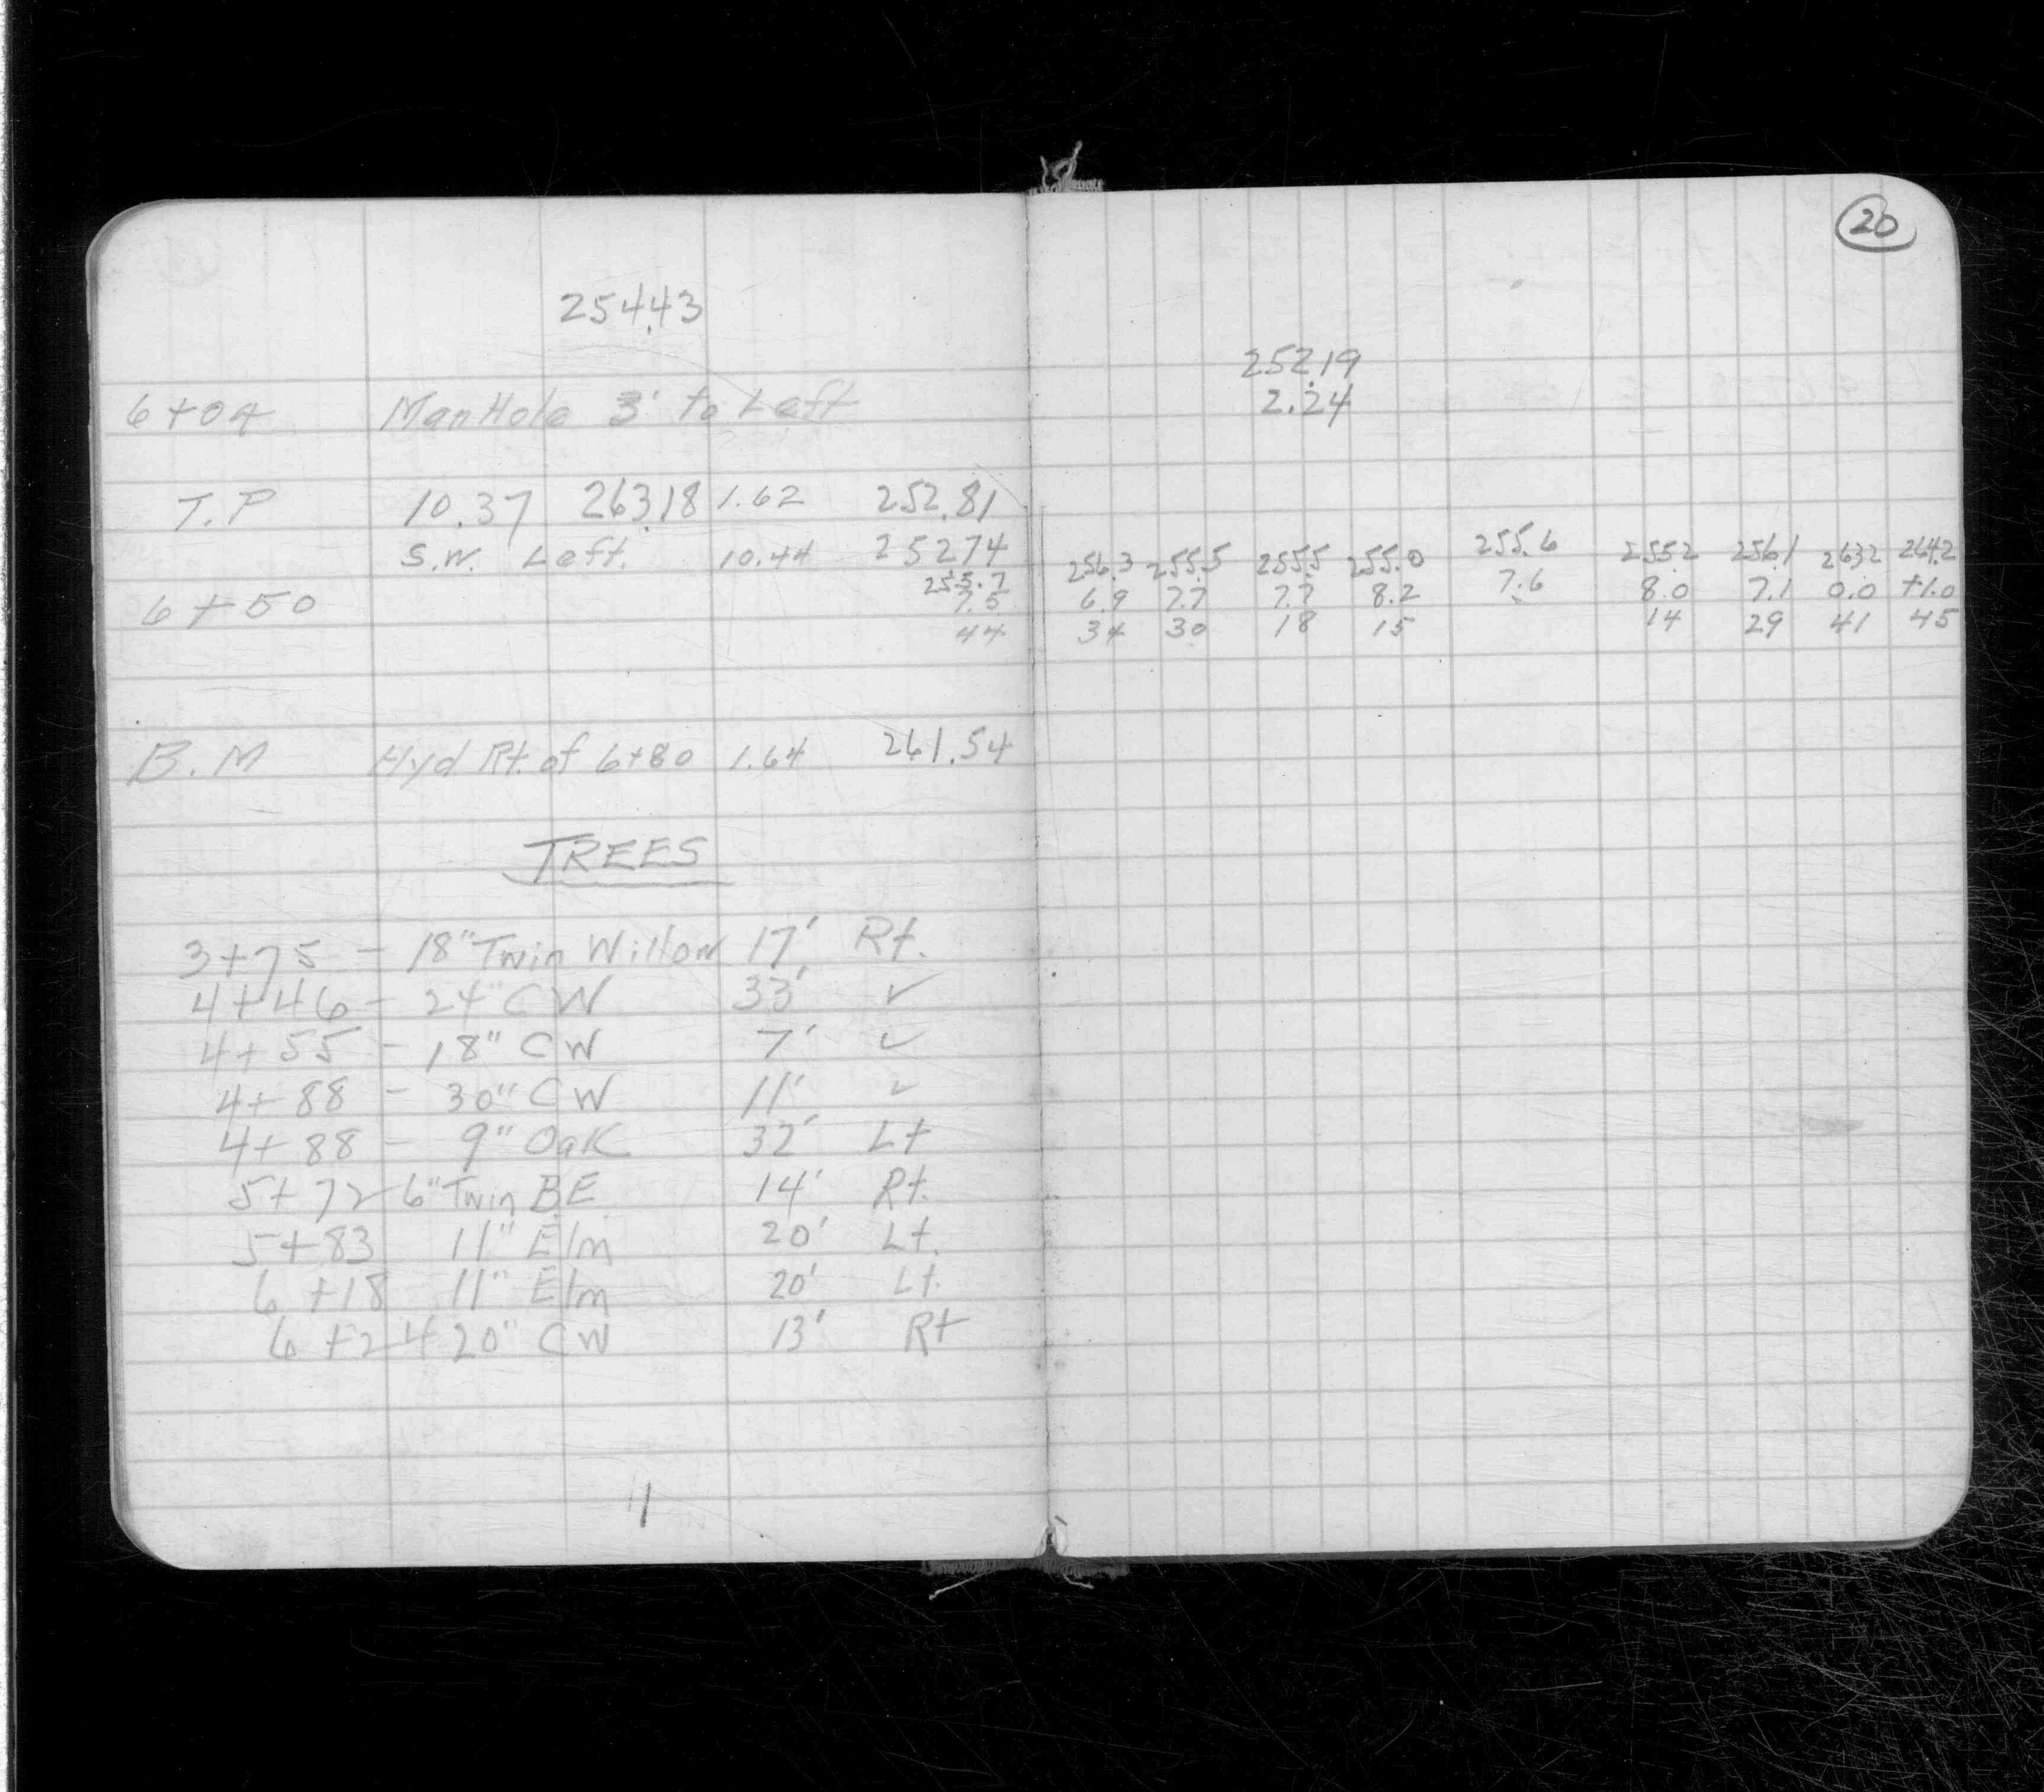 20
254.43
252.19
6+04 ManHole 3' to Left 2.24
T.P 10.37 263.18 1.62 252.81
S.W. Left. 10.44 252.74
255.7 256.3 255.5 255.5 255.0 255.6 255.2 256.1 263.2 264.2
6+50 7.5 6.9 7.7 7.7 8.2 7.6 8.0 7.1 0.0 +1.0
44 34 30 18 15 14 29 41 45
B.M Hyd Rt. of 6+80 1.64 261.54
TREES
3+75 - 18" Twin Willow 17' Rt.
4+46 - 24" CW 33' ✓
4+55 - 18" CW 7' ✓
4+88 - 30" CW 11' ✓
4+88 - 9" Oak 32' Lt
5+72 - 6" Twin B.E. 14' Rt.
5+83 11" Elm 20' Lt.
6+18 11" Elm 20' Lt.
6+24 20" CW 13' Rt